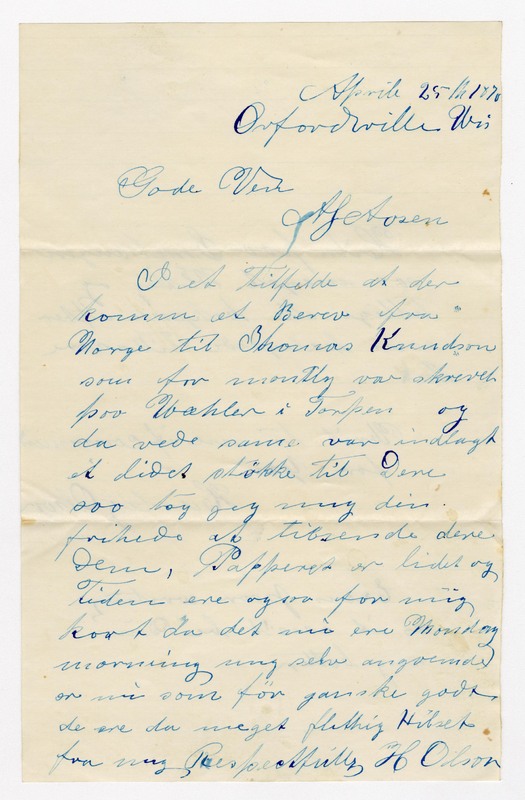 Aprile 25th 1870
Orfordville Wis
Gode Ven
A Aosen
I et tilfelde at der
komm et Berev fra
Norge til Thomas Knudson
som for montly var skrevet
poo Wæhler i Torpen og
da vede same var indlagt
et lidet stökke til Dere
soo tog jeg mig den
frihede at tilsende dere
Dem, Papperet er lidet og
Tiden ere ogsaa for mig
kort da det nu ere Monday
morning mig selv angaaende
er nu som för ganske godt
de ere da meget flittig Hilset
fra mig Respectfully H Oilson